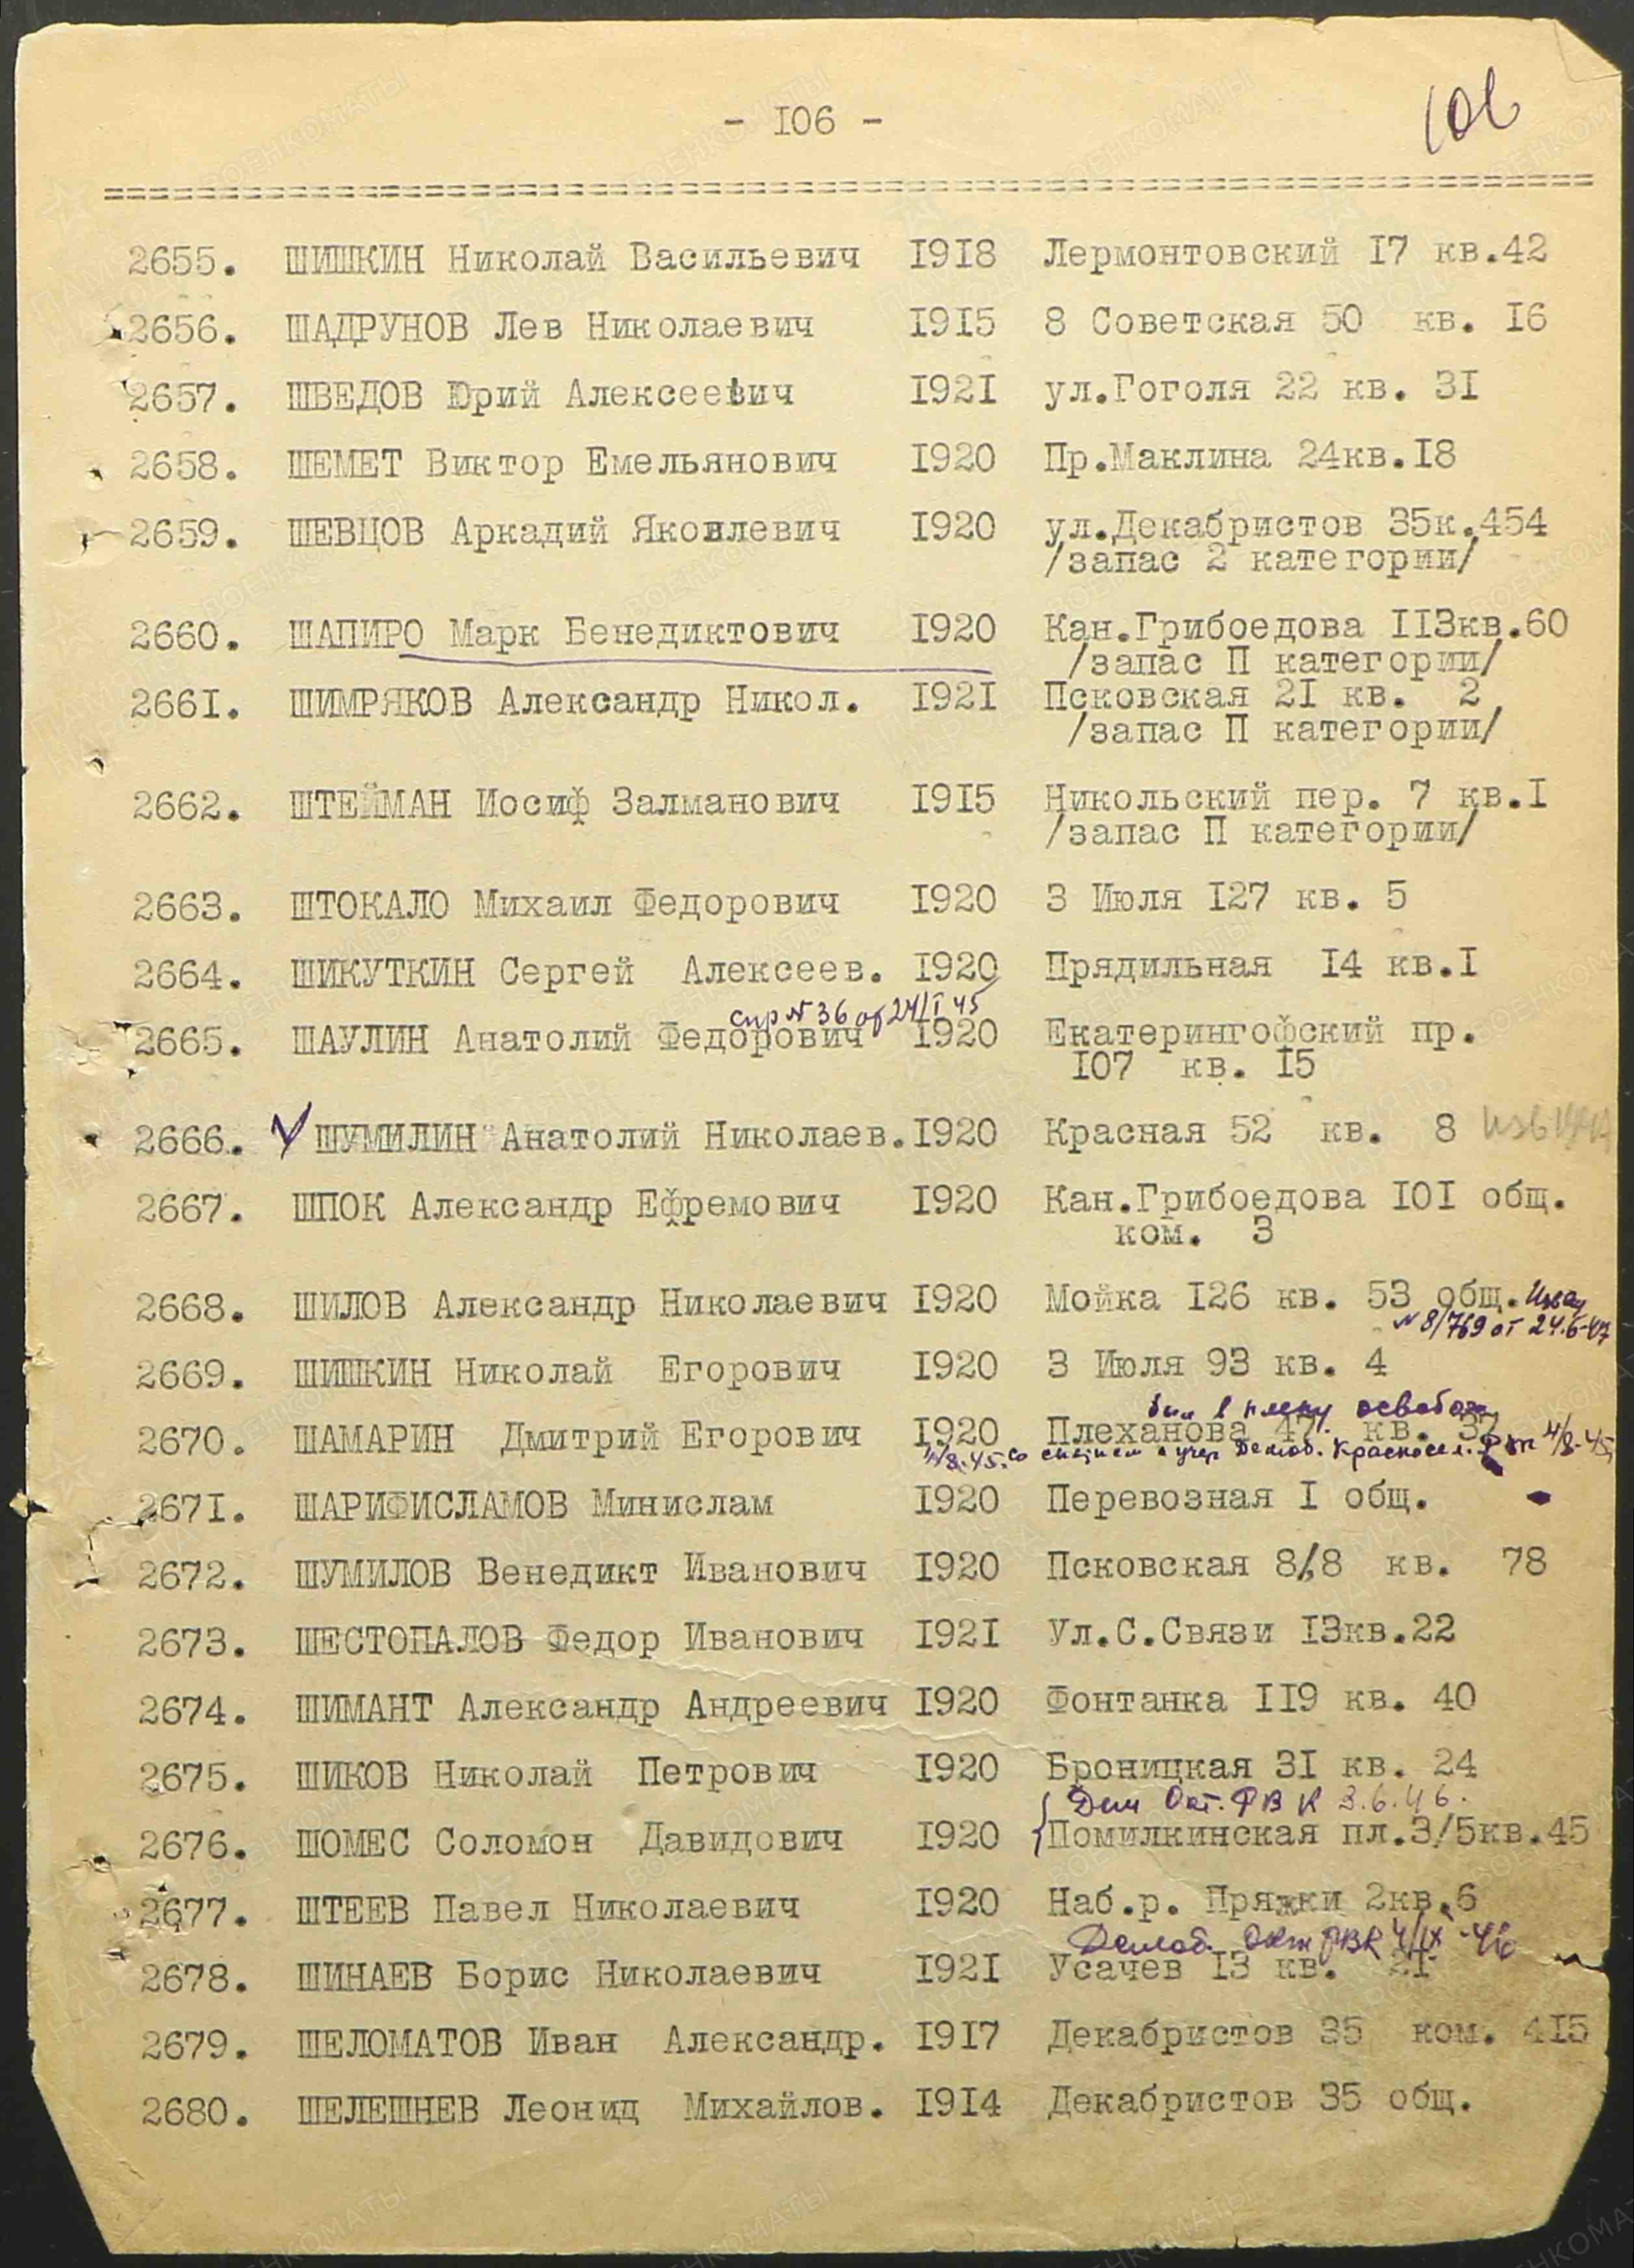 - 106 -
106
2655. ШИШКИН Николай Васильевич 1918 Лермонтовский 17 кв.42
2656. ШАДРУНОВ Лев Николаевич 1915 8 Советская 50 кв. 16
2657. ШВЕДОВ Юрий Алексеевич 1921 ул.Гоголя 22 кв. 31
2658. ШЕМЕТ Виктор Емельянович 1920 Пр.Маклина 24кв.18
2659. ШЕВЦОВ Аркадий Яковлевич 1920 ул.Декабристов 35к.454
/запас 2 категории/
2660. ШАПИРО Марк Бенедиктович 1920 Кан.Грибоедова 113кв.60
/запас П категории/
2661. ШИМРЯКОВ Александр Никол. 1921 Псковская 21 кв. 2
/запас П категории/
2662. ШТЕЙМАН Иосиф Залманович 1915 Никольский пер. 7 кв.1
/запас П категории/
2663. ШТОКАЛО Михаил Федорович 1920 3 Июля 127 кв. 5
2664. ШИКУТКИН Сергей Алексеев. 1920 Прядильная 14 кв.1
спр № 36 от 24/I 45
2665. ШАУЛИН Анатолий Федорович 1920 Екатерингофский пр.
107 кв. 15
2666. ШУМИЛИН Анатолий Николаев. 1920 Красная 52 кв. 8
2667. ШПОК Александр Ефремович 1920 Кан.Грибоедова 101 общ.
ком. 3
2668. ШИЛОВ Александр Николаевич 1920 Мойка 126 кв. 53 общ.
№ 8/769 от 24.6-47
2669. ШИШКИН Николай Егорович 1920 3 Июля 93 кв. 4
в плену освобож
2670. ШАМАРИН Дмитрий Егорович 1920 Плеханова 47 кв. 37
Демоб. Красносел. 4/8-45
2671. ШАРИФИСЛАМОВ Минислам 1920 Перевозная 1 общ.
2672. ШУМИЛОВ Венедикт Иванович 1920 Псковская 8/8 кв. 78
2673. ШЕСТОПАЛОВ Федор Иванович 1921 Ул.С.Связи 13кв.22
2674. ШИМАНТ Александр Андреевич 1920 Фонтанка 119 кв. 40
2675. ШИКОВ Николай Петрович 1920 Броницкая 31 кв. 24
Дем Окт. РВК 3.6.46.
2676. ШОМЕС Соломон Давидович 1920 Помилкинская пл.3/5кв.45
2677. ШТЕЕВ Павел Николаевич 1920 Наб.р. Пряжки 2кв.6
Демоб. Окт РВК 4/IX-46
2678. ШИНАЕВ Борис Николаевич 1921 Усачев 13 кв. 21
2679. ШЕЛОМАТОВ Иван Александр. 1917 Декабристов 35 ком. 415
2680. ШЕЛЕШНЕВ Леонид Михайлов. 1914 Декабристов 35 общ.